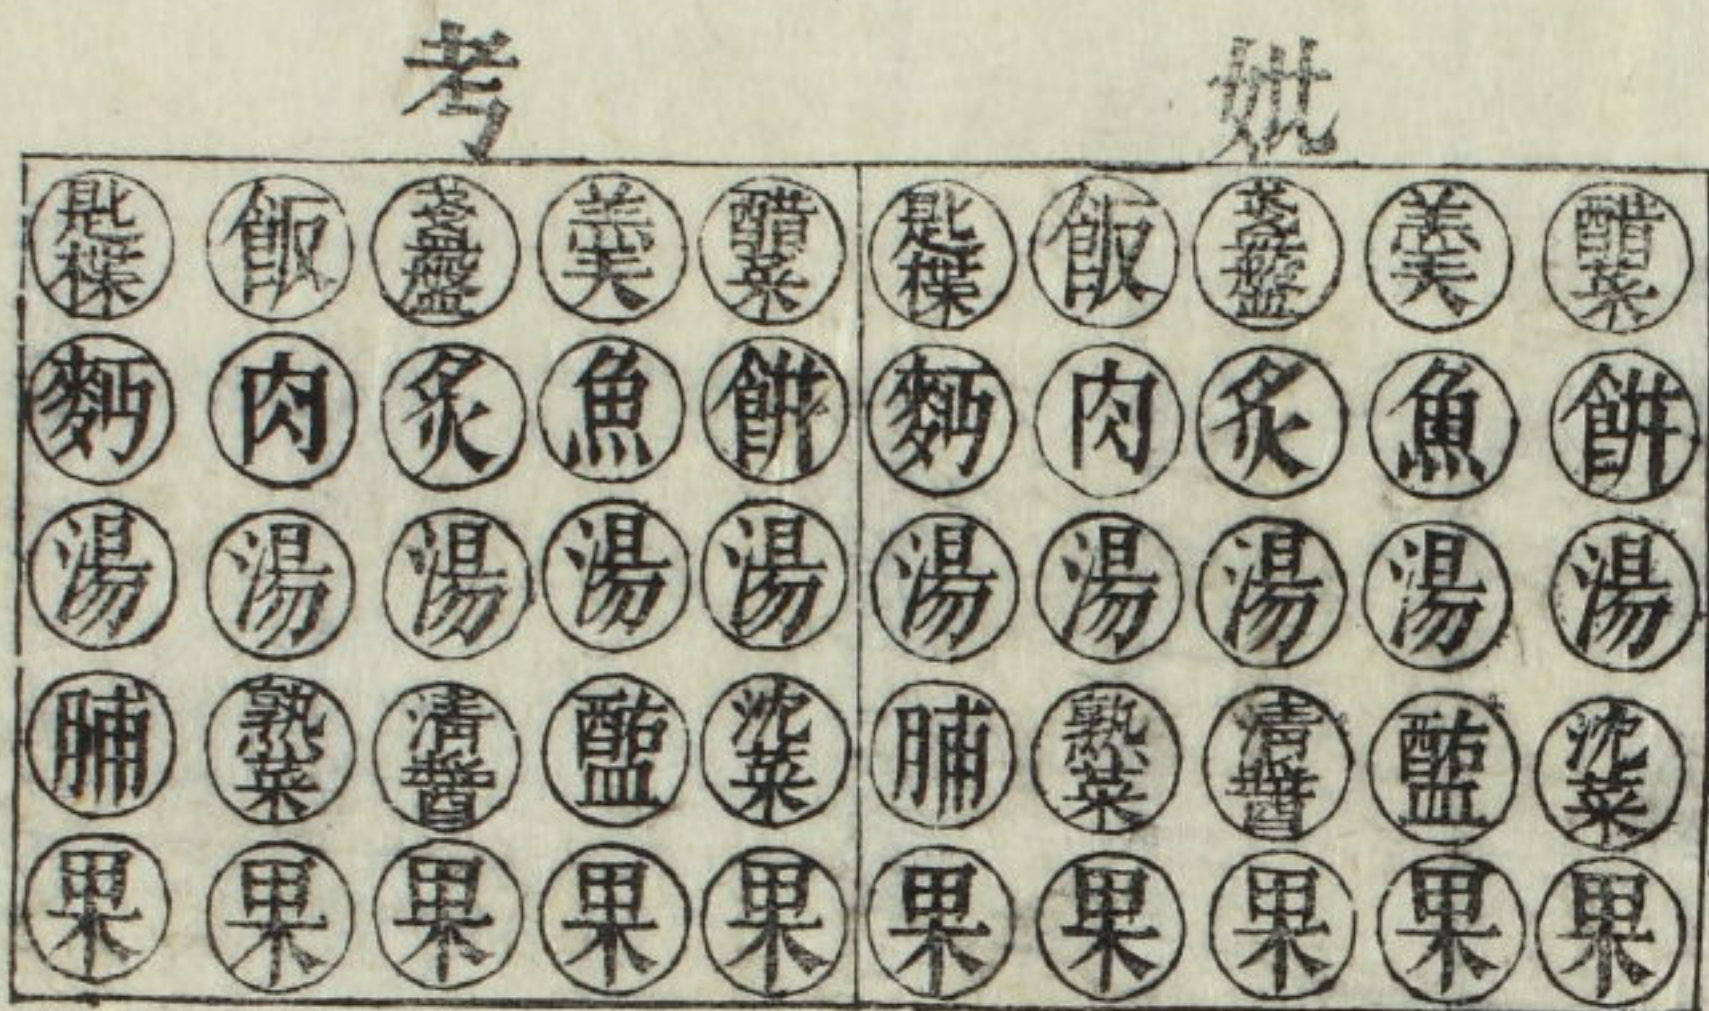 考 妣
匙楪 飯 盞盤 羹 醋菜 匙楪 飯 盞盤 羹 醋菜
麪 肉 炙 魚 餠 麪 肉 炙 魚 餠
湯 湯 湯 湯 湯 湯 湯 湯 湯 湯
脯 熟菜 淸醬 醢 沈菜 脯 熟菜 淸醬 醢 沈菜
果 果 果 果 果 果 果 果 果 果